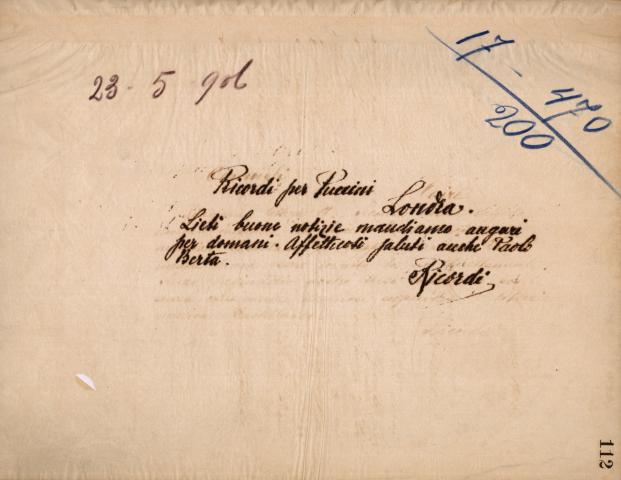 23 - 5 - 906
17 - 470
200
Ricordi per Puccini
Londra.
Lieti buone notizie mandiamo auguri
per domani. Affett. cosi saluti anche Paolo
Berta.
Ricordi
112